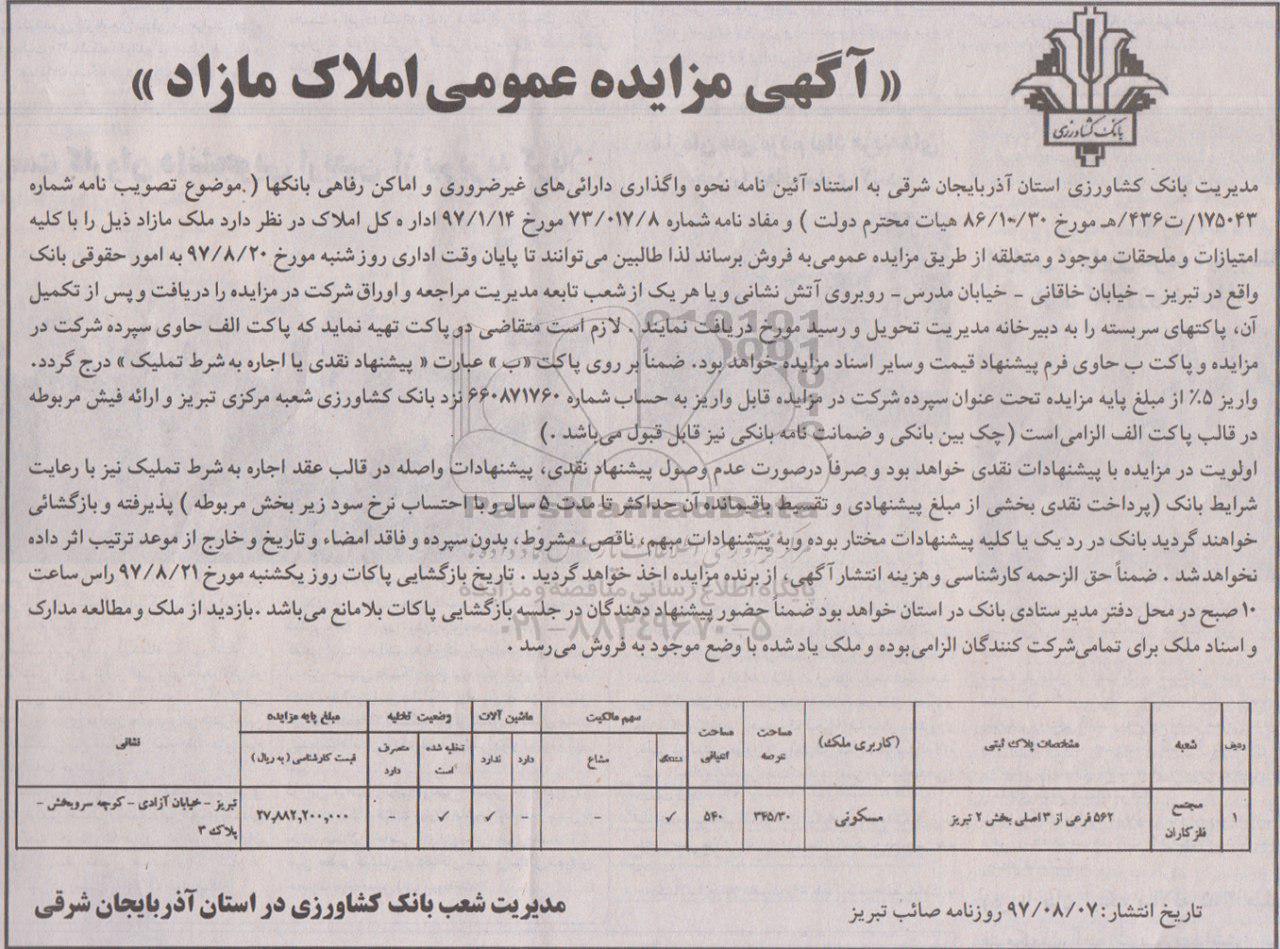 « آگهی مزایده عمومی املاک مازاد »
بانک کشاورزی
مدیریت بانک کشاورزی استان آذربایجان شرقی به استناد آئین نامه نحوه واگذاری دارائی‌های غیرضروری و اماکن رفاهی بانکها ( .موضوع تصویب نامه شماره
۱۷۵۰۴۳/ت۴۳۶/هـ مورخ ۸۶/۱۰/۳۰ هیات محترم دولت ) و مفاد نامه شماره ۷۳/۰۱۷/۸ مورخ ۹۷/۱/۱۴ ادار ه کل املاک در نظر دارد ملک مازاد ذیل را با کلیه
امتیازات و ملحقات موجود و متعلقه از طریق مزایده عمومی‌به فروش برساند لذا طالبین می‌توانند تا پایان وقت اداری روز شنبه مورخ ۹۷/۸/۲۰ به امور حقوقی بانک
واقع در تبریز – خیابان خاقانی – خیابان مدرس– روبروی آتش نشانی و یا هر یک از شعب تابعه مدیریت مراجعه و اوراق شرکت در مزایده را دریافت و پس از تکمیل
آن، پاکتهای سربسته را به دبیرخانه مدیریت تحویل و رسید مورخ دریافت نمایند . لازم است متقاضی دو پاکت تهیه نماید که پاکت الف حاوی سپرده شرکت در
مزایده و پاکت ب حاوی فرم پیشنهاد قیمت و سایر اسناد مزایده خواهد بود. ضمناً بر روی پاکت «ب » عبارت « پیشنهاد نقدی یا اجاره به شرط تملیک » درج گردد.
واریز ۵٪ از مبلغ پایه مزایده تحت عنوان سپرده شرکت در مزایده قابل واریز به حساب شماره ۶۶۰۸۷۱۷۶۰ نزد بانک کشاورزی شعبه مرکزی تبریز و ارائه فیش مربوطه
در قالب پاکت الف الزامی‌است (چک بین بانکی و ضمانت نامه بانکی نیز قابل قبول می‌باشد .)
اولویت در مزایده با پیشنهادات نقدی خواهد بود و صرفاً درصورت عدم وصول پیشنهاد نقدی، پیشنهادات واصله در قالب عقد اجاره به شرط تملیک نیز با رعایت
شرایط بانک (پرداخت نقدی بخشی از مبلغ پیشنهادی و تقسیط باقیمانده آن حداکثر تا مدت ۵ سال و با احتساب نرخ سود زیر بخش مربوطه ) پذیرفته و بازگشائی
خواهند گردید بانک در رد یک یا کلیه پیشنهادات مختار بوده و به پیشنهادات مبهم، ناقص، مشروط، بدون سپرده و فاقد امضاء و تاریخ و خارج از موعد ترتیب اثر داده
نخواهد شد . ضمناً حق الزحمه کارشناسی و هزینه انتشار آگهی، از برنده مزایده اخذ خواهد گردید . تاریخ بازگشایی پاکات روز یکشنبه مورخ ۹۷/۸/۲۱ راس ساعت
۱۰ صبح در محل دفتر مدیر ستادی بانک در استان خواهد بود ضمناً حضور پیشنهاد دهندگان در جلسه بازگشایی پاکات بلامانع می‌باشد .بازدید از ملک و مطالعه مدارک
و اسناد ملک برای تمامی‌شرکت کنندگان الزامی‌بوده و ملک یاد شده با وضع موجود به فروش می‌رسد .
ParsNamadData
پایگاه اطلاع رسانی مناقصه و مزایده
۰۲۱-۸۸۳۴۹۶۷۰-۵
ردیف شعبه مشخصات پلاک ثبتی (کاربری ملک) مساحت عرصه مساحت اعیانی سهم مالکیت ماشین آلات وضعیت تخلیه مبلغ پایه مزایده نشانی
ششدانگ مشاع دارد ندارد تخلیه شده است متصرف دارد قیمت کارشناسی ( به ریال )
۱ مجتمع فلزکاران ۵۶۲ فرعی از ۳ اصلی بخش ۲ تبریز مسکونی ۳۴۵/۳۰ ۵۴۰ ✓ – – ✓ ✓ ۲۷,۸۸۲,۲۰۰,۰۰۰ تبریز – خیابان آزادی – کوچه سروبخش – پلاک ۳
تاریخ انتشار: ۹۷/۰۸/۰۷ روزنامه صائب تبریز
مدیریت شعب بانک کشاورزی در استان آذربایجان شرقی